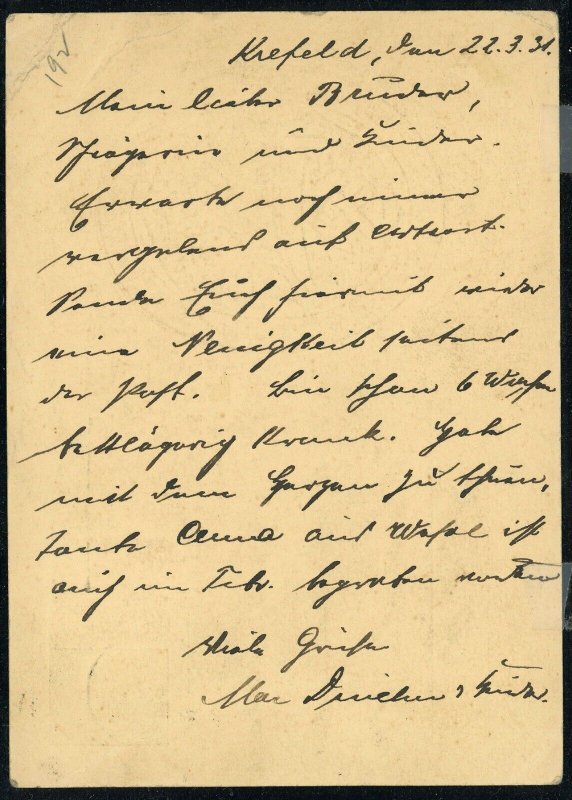 192
Krefeld, den 22.3.31.
Mein lieber Bruder,
Schwägerin und Kinder.
Erwarte noch immer
vergebend auf Antwort.
Sende Euch hiermit wieder
eine Neuigkeit seitens
der Post. Bin schon 6 Wochen
bettlägerig Krank. Habe
mit dem Herzen zu thuen,
Tante Anna aus Wesel ist
auch im Febr. begraben worden
Viele Grüße
Kinder.